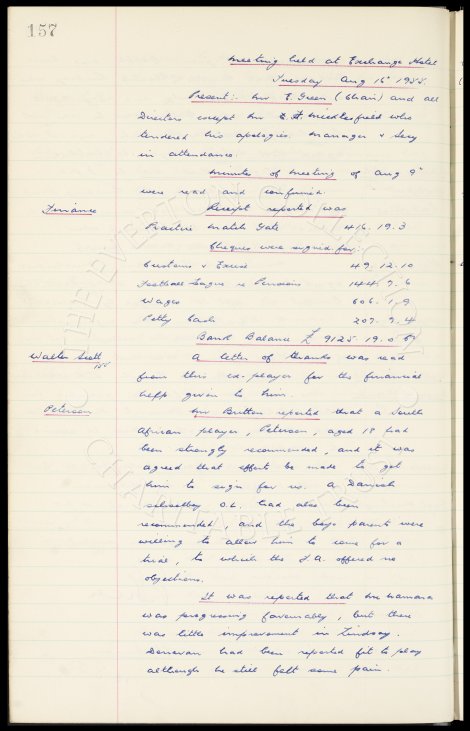 157
Meeting held at Exchange Hotel
Tuesday Aug 16 1955.
Present: Mr E. Green (Chair) and all
Directors except Mr who
tendered his apologies. Manager & Secy
in attendance.
Minutes of meeting of Aug 9
were read and confirmed.
Finance
Receipt reported was
Practice Match Gate 416. 19. 3
Cheques were signed for:
Customs & Excise 49. 12. 10
Football League re Pensions 144. 7. 6
Wages 606. 1. 9
Petty Cash 207. 7. 4
Bank Balance £ 9125 19. 0
Walter Scott
A letter of thanks was read
from this ex-player for the financial
help given to him.
Peterson
Mr Britton reported that a South
African player, Peterson, aged 18 had
been strongly recommended, and it was
agreed that effort be made to get
him to sign for us. A Danish
schoolboy O.L. had also been
recommended, and the boys parents were
willing to allow him to come for a
trial, to which the F.A. offered no
objections.
It was reported that McNamara
was progressing favourably, but there
was little improvement in Lindsay.
Donovan had been reported fit to play
although he still felt some pain.
THE EVERTON COLLECTION
CHARITABLE TRUST